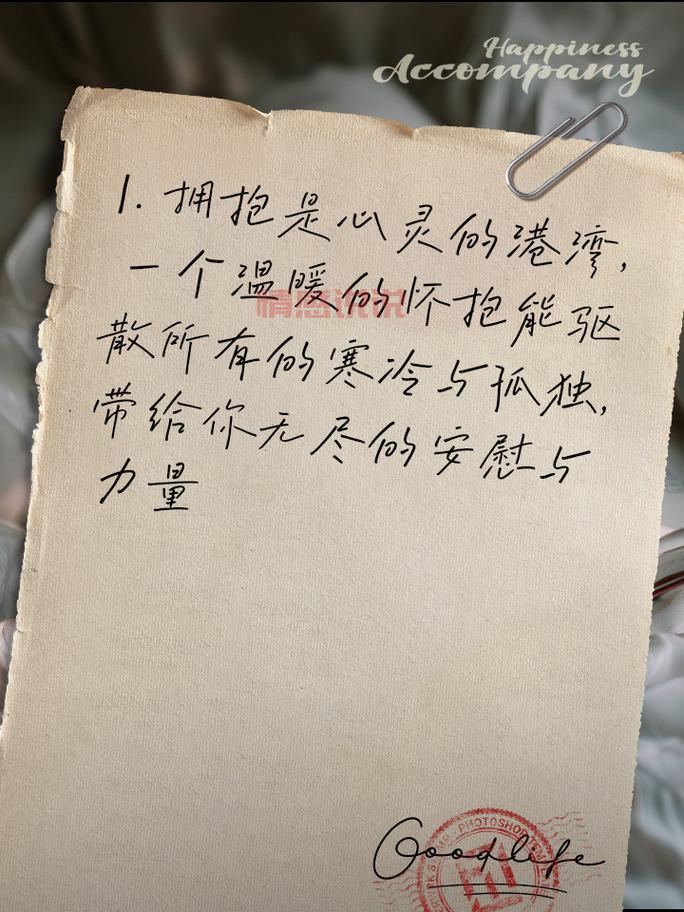 Happiness
Accompany
1. 拥抱是心灵的港湾,
一个温暖的怀抱能驱
散所有的寒冷与孤独,
带给你无尽的安慰与
力量
情感说说
Goodlife
PHOTOSHOP